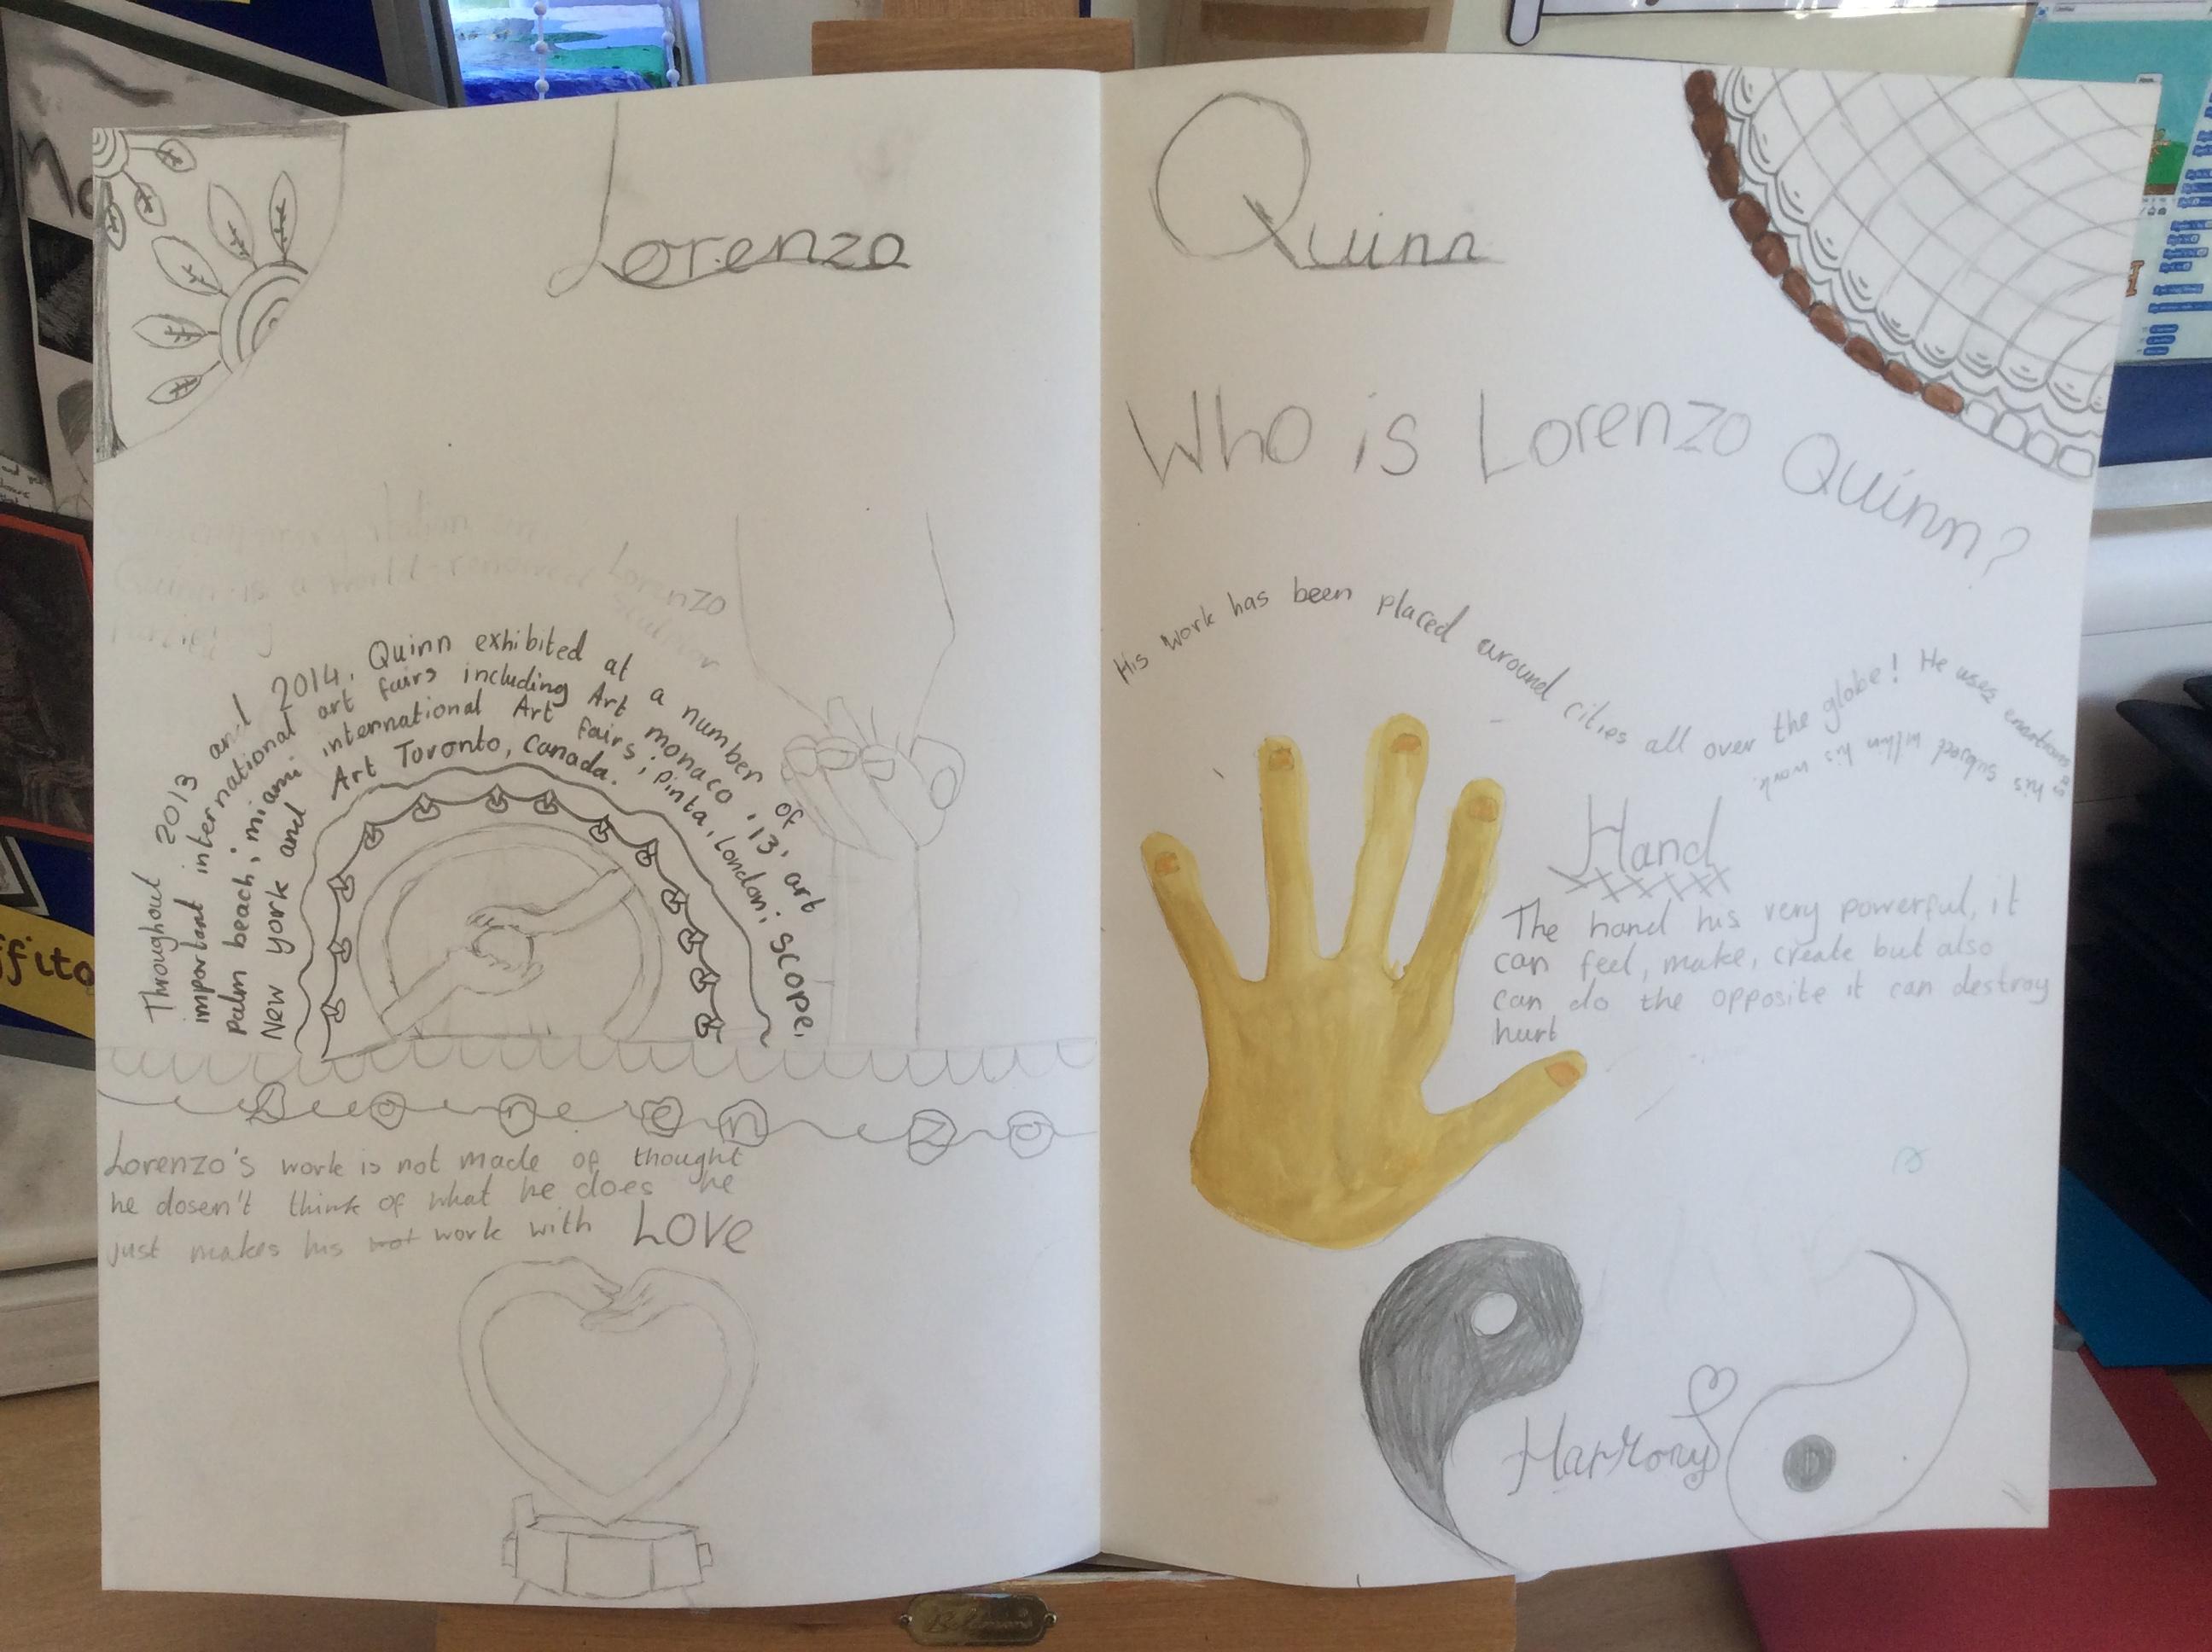 Lorenzo
Quinn is a world-renowned
Lorenzo
Throughout 2013 and 2014, Quinn exhibited at a number of
important international art fairs including Art monaco '13, art
palm beach; miami international Art fairs; pinta, London; scope,
New york and Art Toronto, Canada.
Lorenzo
Lorenzo's work is not made of thought
he dosen't think of what he does he
just makes his not work with LOVE
Quinn
Who is Lorenzo Quinn?
His work has been placed around cities all over the globe! He uses emotions as
his subject within his work
Hand
The hand his very powerful, it
can feel, make, create but also
can do the opposite it can destroy
hurt
Harmony